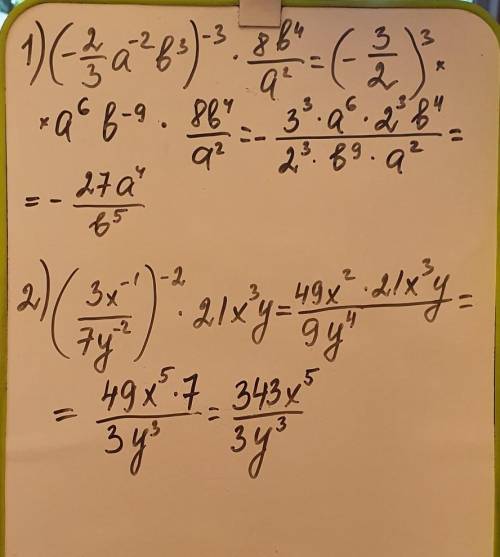 1) (-2/3 a⁻² b³)⁻³ · 8b⁴/a² = (-3/2)³ ×
× a⁶ b⁻⁹ · 8b⁴/a² = - 3³·a⁶·2³b⁴/2³·b⁹·a² =
= - 27a⁴/b⁵
2) (3x⁻¹/7y⁻²)⁻² · 21x³y = 49x²·21x³y/9y⁴ =
= 49x⁵·7/3y³ = 343x⁵/3y³